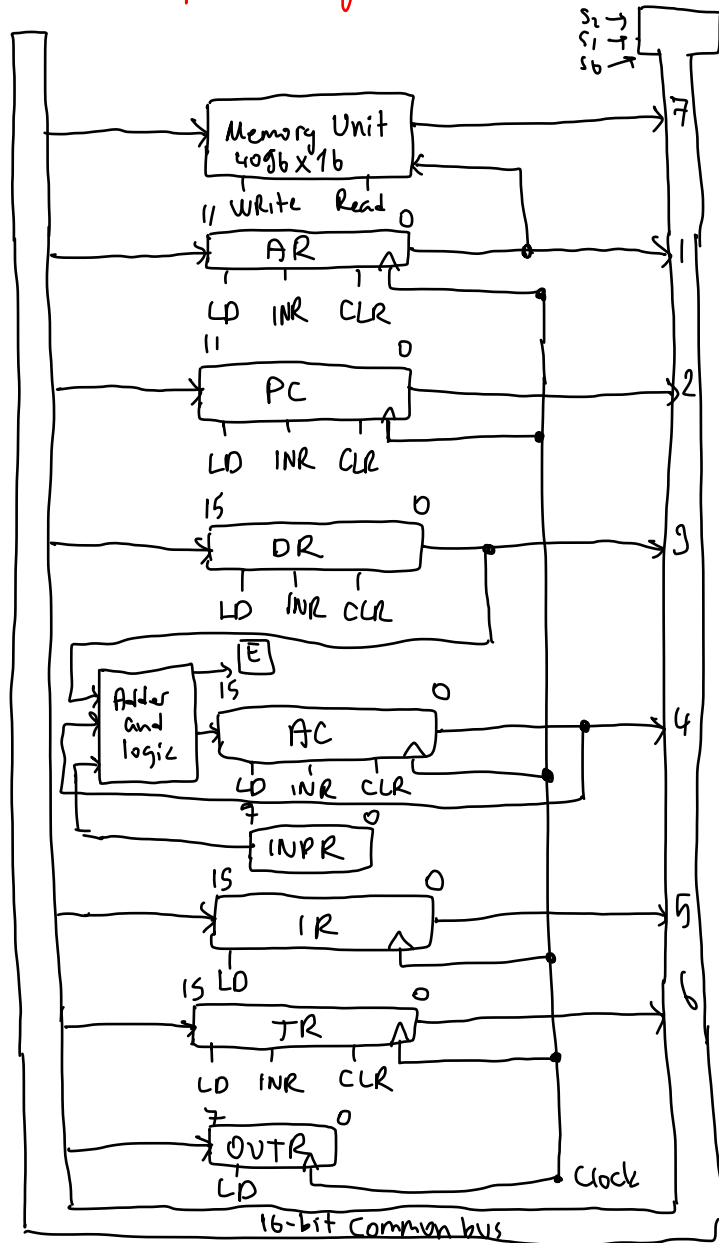 S2
S1
S0
Memory Unit
4096 x 16
7
Write Read
11 0
AR
1
LD INR CLR
11 0
PC
2
LD INR CLR
15 0
DR
3
LD INR CLR
E
15 0
Adder
and
logic
AC
4
LD INR CLR
7 0
INPR
15 0
IR
5
LD
15 0
6
TR
LD INR CLR
7 0
OUTR
LD
Clock
16-bit Common bus